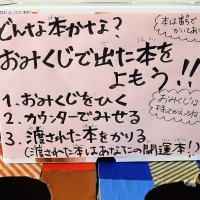 どんな本かな?
おみくじで出た本を
よもう!!
1.おみくじをひく
2.カウンターでみせる
3.渡された本をかりる
(渡された本はあなたの開運本!)
おみくじは